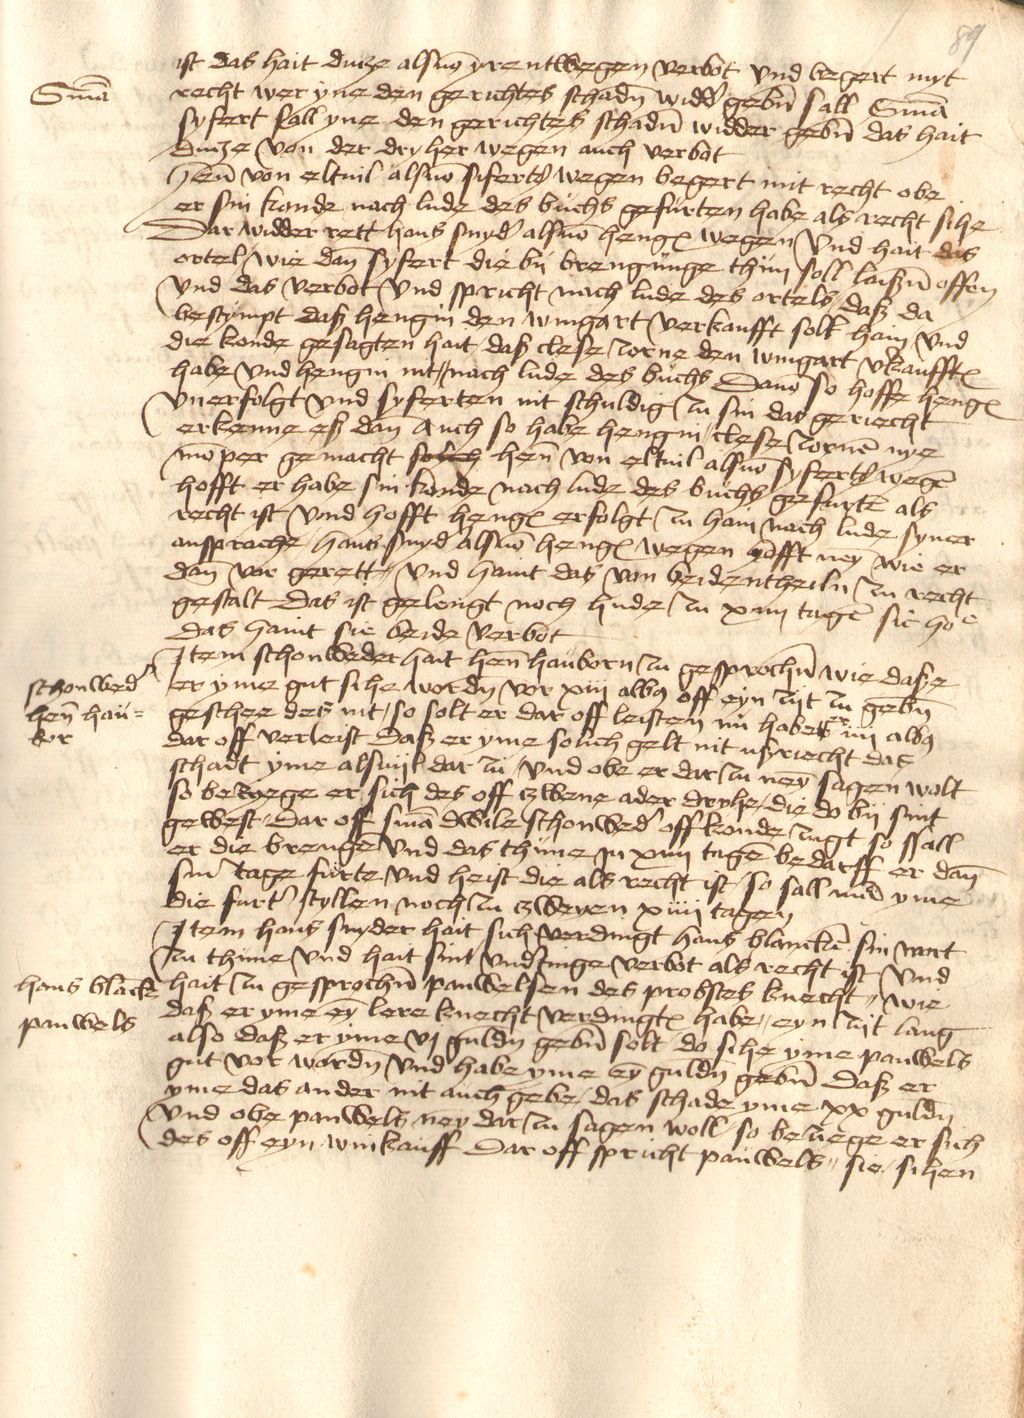 89
ist das hait dutze alsuo yrentwegen verbot vnd begert myt
Smā
recht wer yne den gerichtes schadn widd' gebn sall Smā
syfert sall yne den gerichtes schadn widder gebn das hait
dutze von der dryher wegen auch verbot
Hen von eltuil alsuo siferts wegen begert mit recht obe
er sin konde nach lude des buchs gefurten habe als recht sihe
Dar widder rett hans snyd' alsuo heng wegen vnd hait das
ortel wie dan syfert die by brengunge thun soll laißn offen
vnd das verbot vnd spricht nach lude des ortels daß da
bestympt daß hengin den wingart verkaufft solt hain vnd
die konde gesagten hait daß clese zorne den wingart v'kaufft
habe vnd hengin nit nach lude des buchs Dauo so hoffe heng
vnerfolgt vnd syferten nit schuldig zu sin das geriecht
erkenne eß dan Auch so habe hengin clese zornē nye
mōper gemacht hen von eltuil alsuo syferts wegē
hofft er habe sin konde nach lude des buchs gefurtē als
recht ist vnd hofft heng erfolgt zu hain nach lude syner
ansprache hans snyd' alsuo heng wegen hofft neyn wie er
dan vor gerett vnd haint das von beidentheiln zu recht
gestalt Das ist gelengt noch hude zu xiiii tagē sic ho
das haint sie beide verbot
Item schonweder hait hen hauborn zu gesprochn wie daß e
schonwed'
er yme gut sihe wordn vor xiii alb off eyn zijt zu gebn
hen hau=
geschee des nit so solt er dar off leisten nu habe er iiii alb
bor
dar off verleist Daß er yme solich gelt nit ußriecht das
schadt yme alsuijl dar zu vnd obe er dar zu neyn sagen wolt
so beziege er sich des off zwene ader dryhe die do bij sint
gewest Dar off smā dwile schonwed' off konde zugt so sall
er die brengē vnd das thune jn xiiii tagē bedarff er dan
sin' tage furte vnd heist die als recht ist so sall mā yme
die furt' styllen noch zu zweyen xiiii tagen
Item hans snyder hait sich verdingt hans blanckē sin wort
zu thune vnd hait sint vnderdinge verbot als recht ist vnd
hans blanck
hait zu gesprochn pauwelsen des probstes knecht wie
pauwels
daß er yme ey lere knecht verdingt habe eyn zijt lang
also daß er yme vj guldn gebn solt do sihe yme pauwels
gut vor wordn vnd habe yme ey guldn gebn Daß er
yme das ander nit auch gebe das schade yme xx guldn
vnd obe pauwels ney dar zu sagen woll so beziege er sich
des off eyn winkauff Dar off spricht pauwels sie sihen